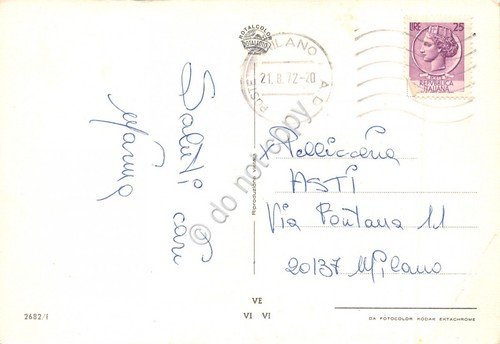 ROTALCOLOR
MILANO
POSTE
21.8.72-20
LIRE 25
REPUBBLICA
ITALIANA
Saluti cari
x Pelliccena
ASTI
Via Fontana 11
20137 Milano
do not copy
2682/f
VE
VI VI
DA FOTOCOLOR KODAK EKTACHROME